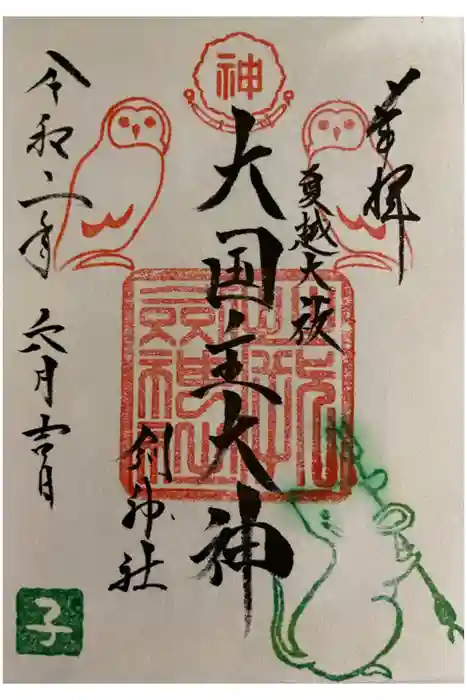 神
奉拝
夏越大祓
大国主大神
剣神社
令和二年 六月吉日
子